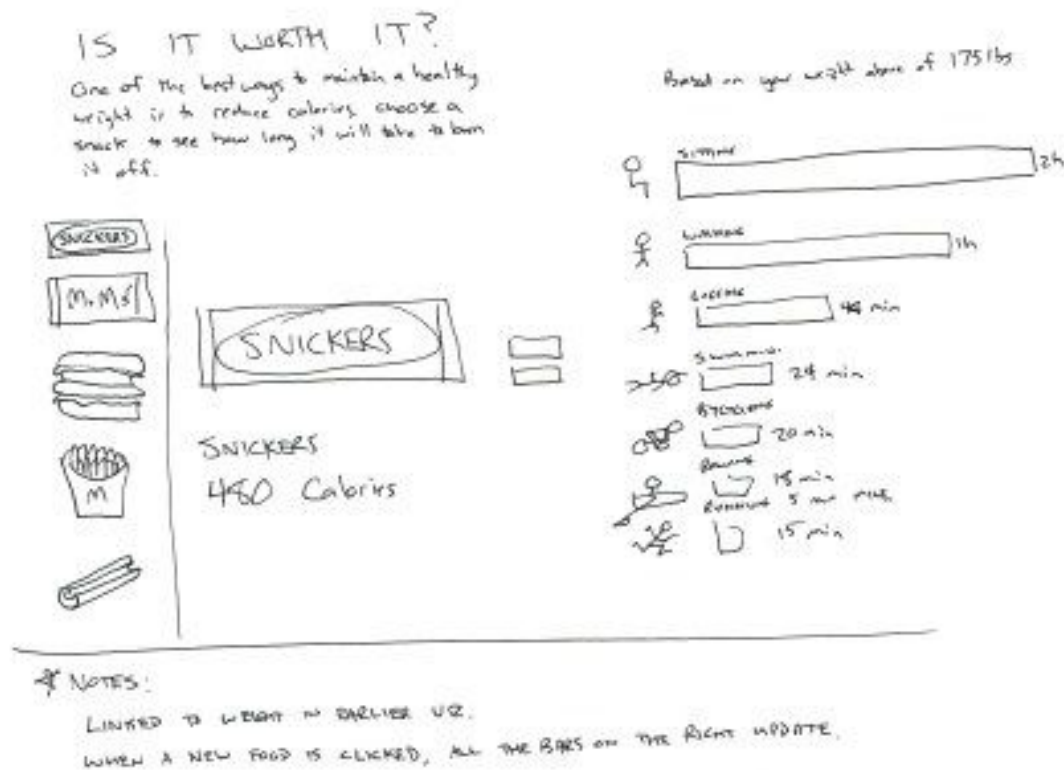 IS IT WORTH IT?
One of the best ways to maintain a healthy
weight is to reduce calories, choose a
snack to see how long it will take to burn
it off.
Based on your weight above of 175 lbs
SNICKERS
M&M's
M
SNICKERS
SNICKERS
480 Calories
SITTING
2h
WALKING
1h
min
SWIMMING
min
BYCYCLING
20 min
ROWING
min
RUNNING 5 MIN MILE
15 min
* NOTES:
LINKED TO WEIGHT IN EARLIER VIZ.
WHEN A NEW FOOD IS CLICKED, ALL THE BARS ON THE RIGHT UPDATE.